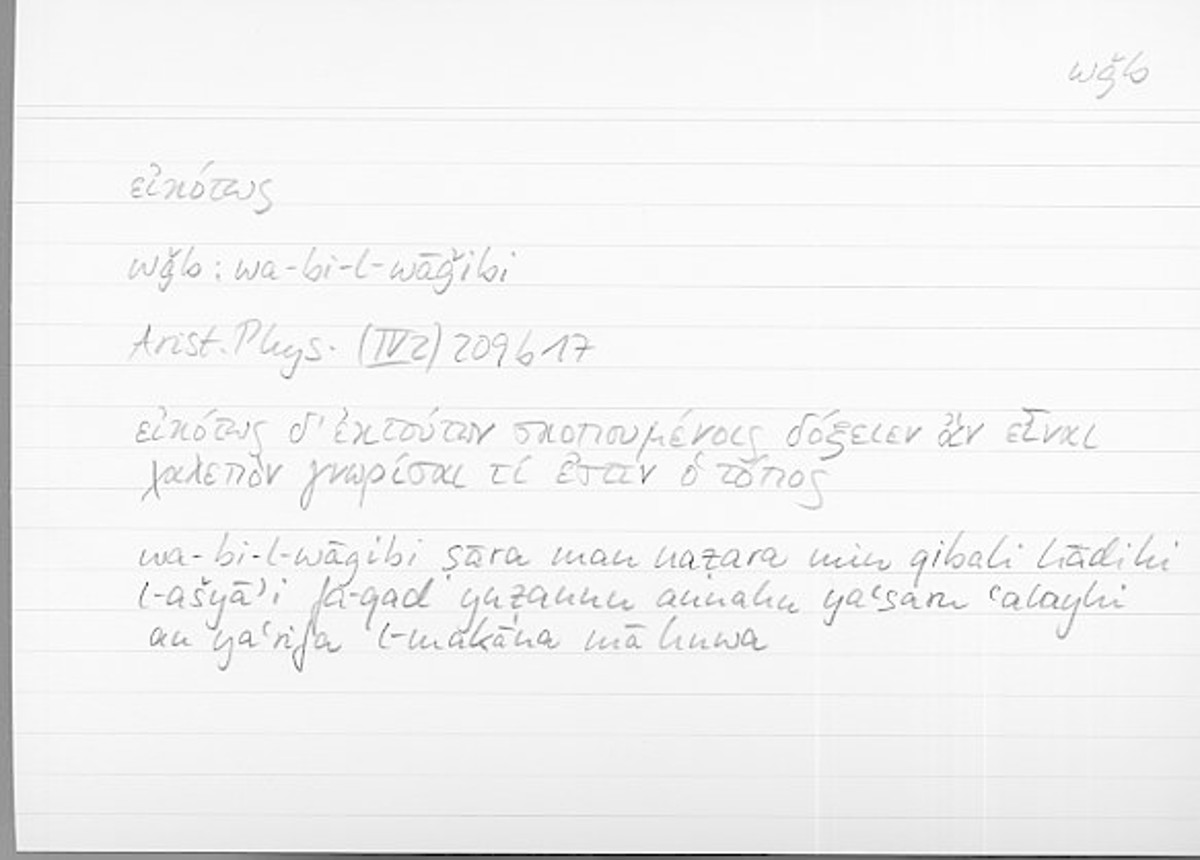 wǧb
εἰκότως
wǧb: wa-bi-l-wāǧibi
Arist. Phys. (IV2) 209 b 17
εἰκότως δ' ἐκ τούτων σκοπουμένοις δόξειεν ἂν εἶναι
χαλεπὸν γνωρίσαι τί ἐστιν ὁ τόπος
wa-bi-l-wāǧibi ṣāra man naẓara min qibali hādihi
l-ašyāʾi fa-qad yuẓannu annahu yaʿsaru ʿalayhi
an yaʿrifa l-makāna mā huwa